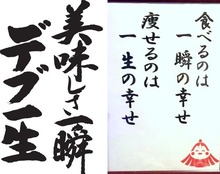 美味しさ一瞬
デブ一生
食べるのは
一瞬の幸せ
痩せるのは
一生の幸せ